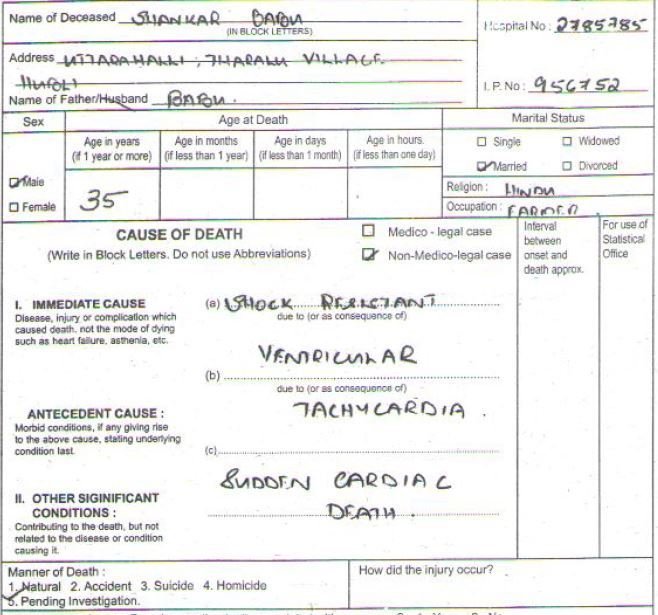 Name of Deceased SHANKAR BABU
(IN BLOCK LETTERS)
Hospital No : 2785785
Address UTTARAHALLI, THARALU VILLAGE
HUBLI
I. P. No : 956752
Name of Father/Husband BABU.
Sex
Age at Death
Marital Status
Age in years
(if 1 year or more)
Age in months
(if less than 1 year)
Age in days
(if less than 1 month)
Age in hours.
(if less than one day)
Single
Widowed
Married
Divorced
Male
Female
35
Religion : HINDU
Occupation : FARMER.
CAUSE OF DEATH
(Write in Block Letters. Do not use Abbreviations)
Medico - legal case
Non-Medico-legal case
Interval
between
onset and
death approx.
For use of
Statistical
Office
I. IMMEDIATE CAUSE
Disease, injury or complication which
caused death. not the mode of dying
such as heart failure, asthenia, etc.
(a) SHOCK RESISTANT
due to (or as consequence of)
VENTRICULAR
(b)
due to (or as consequence of)
ANTECEDENT CAUSE :
Morbid conditions, if any giving rise
to the above cause, stating underlying
condition last.
TACHYCARDIA.
(c)
SUDDEN CARDIAC
DEATH.
II. OTHER SIGINIFICANT
CONDITIONS :
Contributing to the death, but not
related to the disease or condition
causing it.
Manner of Death :
1. Natural 2. Accident 3. Suicide 4. Homicide
5. Pending Investigation.
How did the injury occur?